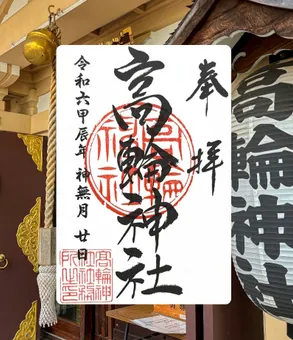 奉拝
高輪神社
令和六甲辰年 神無月 廿日
高輪神社
高輪神社
社務所
高輪神社